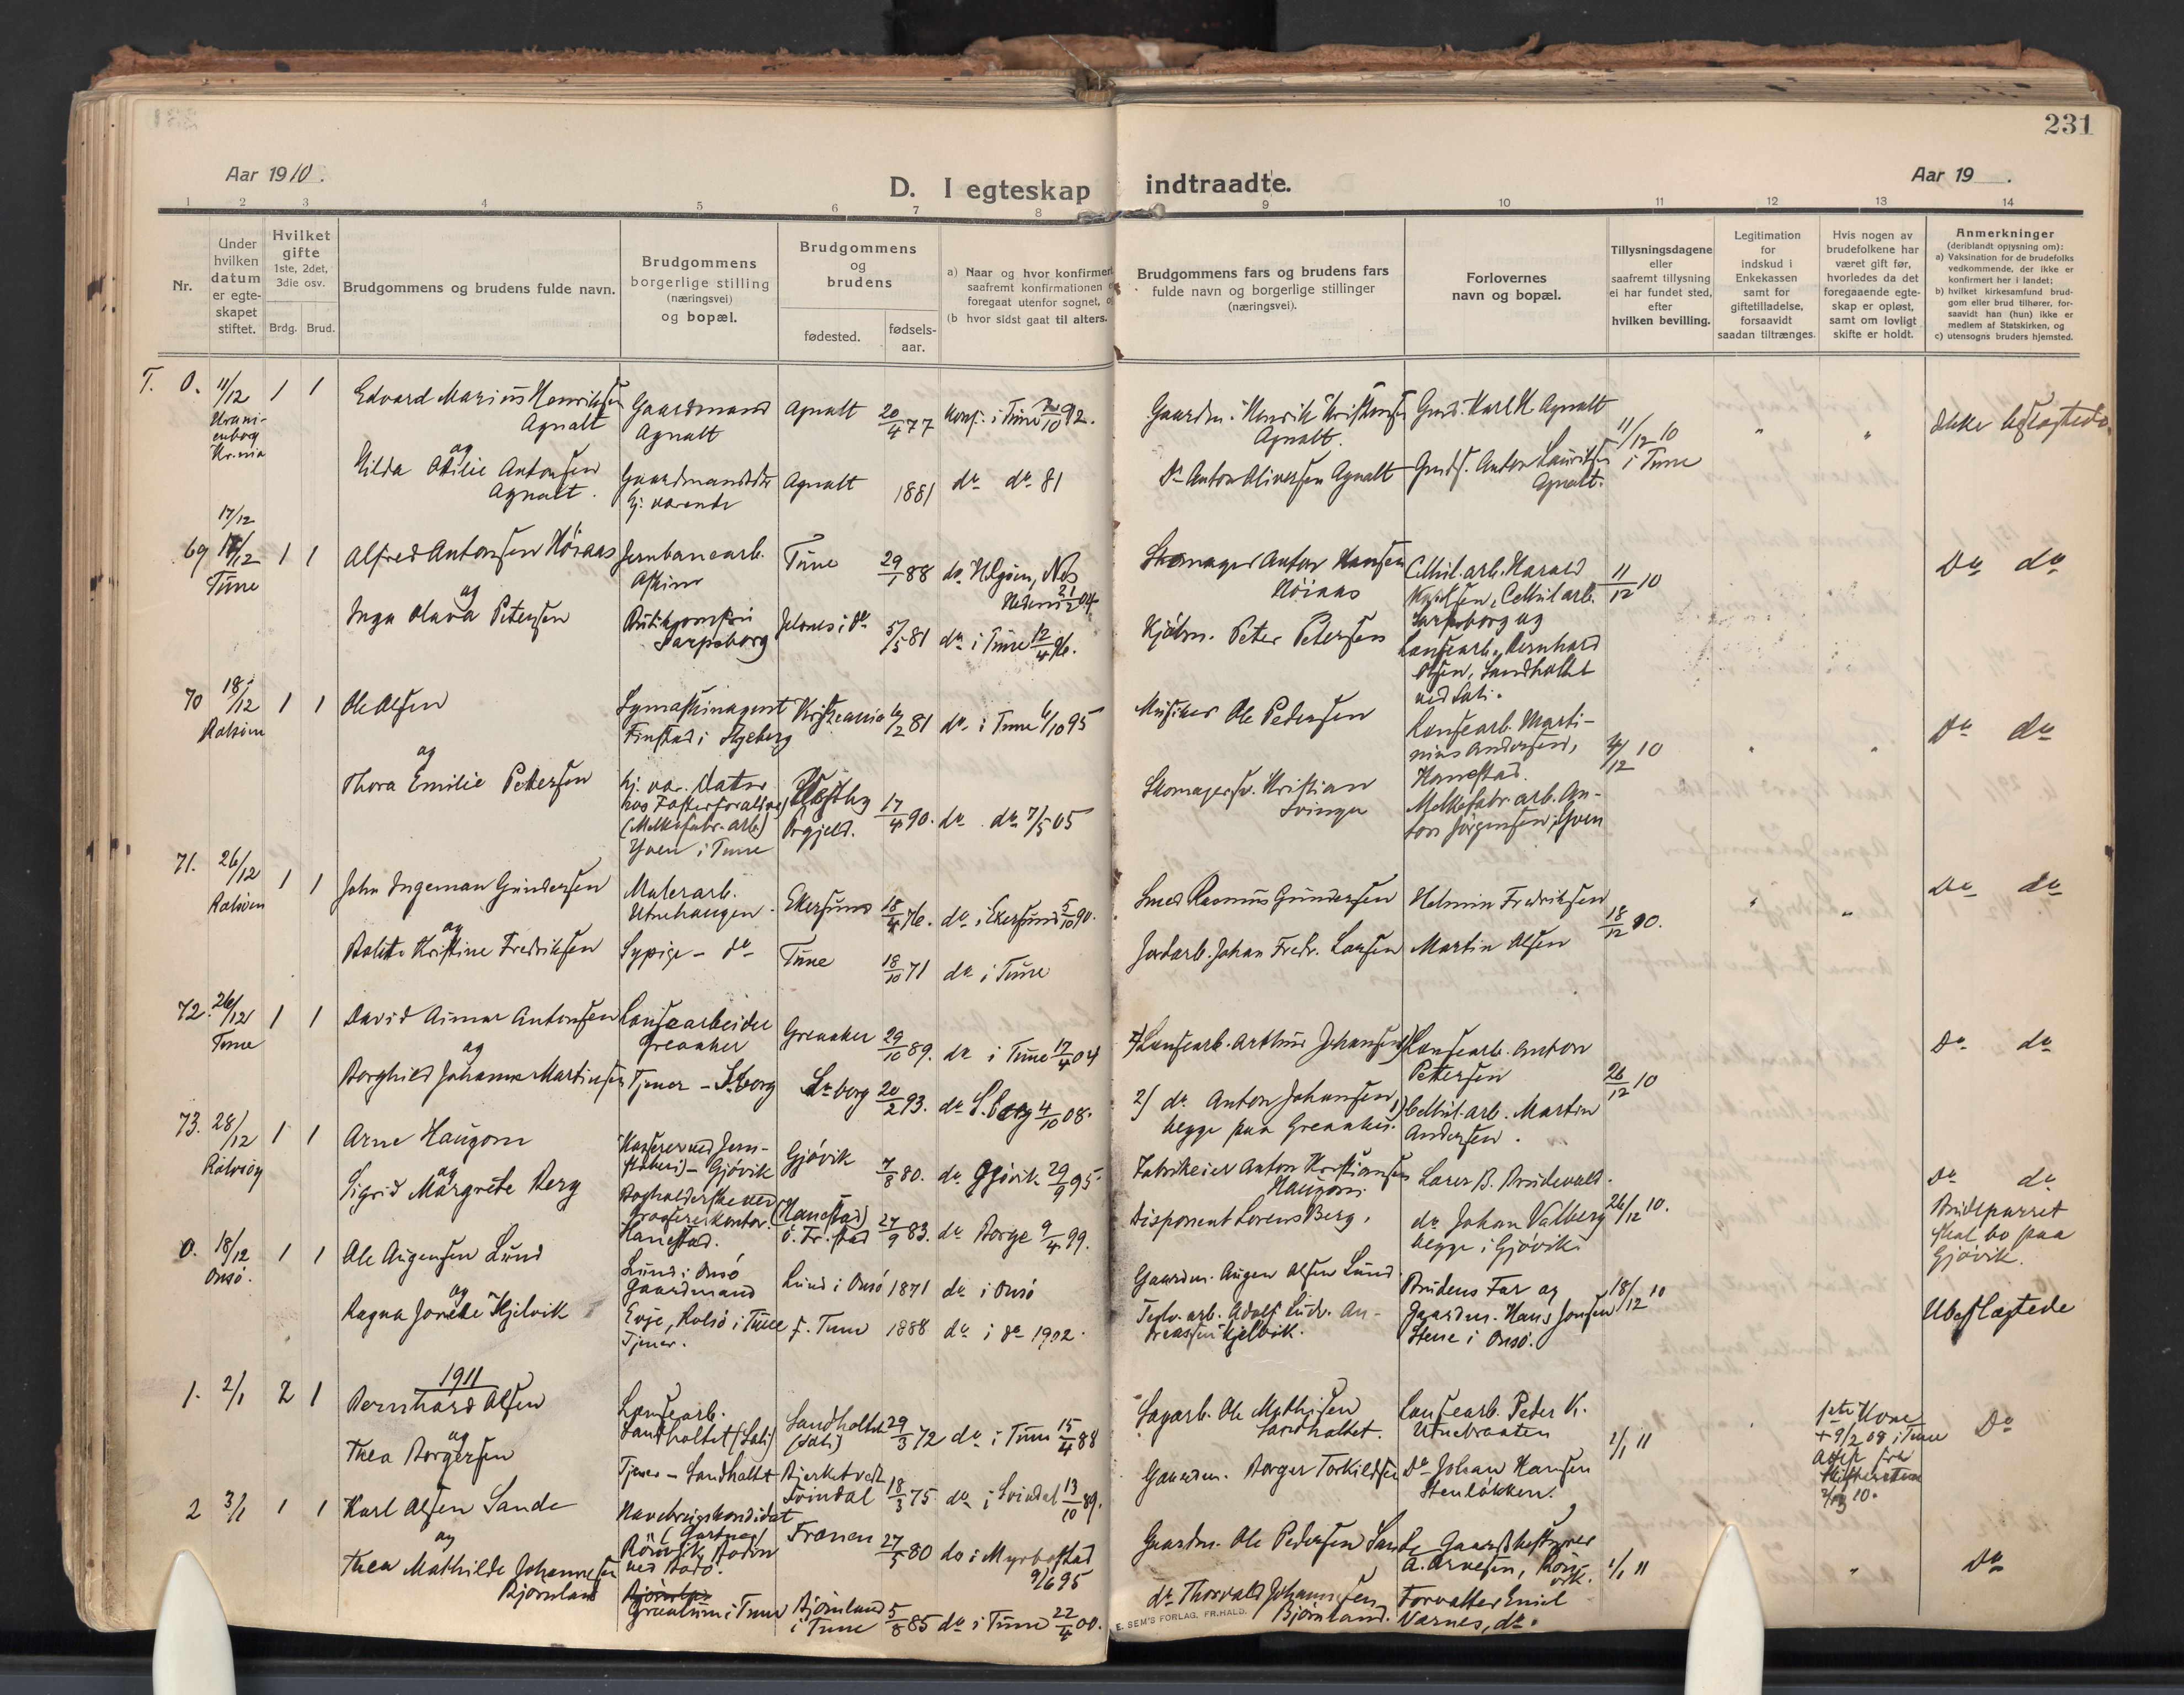 231
Aar 1910.
D. I egteskap indtraadte.
Aar 19 .
1 2 3 4 5 6 7 8 9 10 11 12 13 14
Nr.
Under hvilken datum er egteskapet stiftet.
Hvilket gifte 1ste, 2det, 3die osv.
Brdg. Brud.
Brudgommens og brudens fulde navn.
Brudgommens borgerlige stilling (næringsvei) og bopæl.
Brudgommens og brudens
fødested.
fødselsaar.
a) Naar og hvor konfirmert
saafremt konfirmationen
foregaat utenfor sognet,
(b hvor sidst gaat til alters.
Brudgommens fars og brudens fars
fulde navn og borgerlige stillinger
(næringsvei).
Forlovernes
navn og bopæl.
Tillysningsdagene
eller
saafremt tillysning
ei har fundet sted,
efter
hvilken bevilling.
Legitimation
for
indskud i
Enkekassen
samt for
giftetilladelse,
forsaavidt
saadan tiltrænges.
Hvis nogen av
brudefolkene har
været gift før,
hvorledes da det
foregaaende egteskap er opløst,
samt om lovligt
skifte er holdt.
Anmerkninger
(deriblandt oplysning om):
a) Vaksination for de brudefolks
vedkommende, der ikke er
konfirmert her i landet;
b) hvilket kirkesamfund brudgom eller brud tilhører, forsaavidt han (hun) ikke er
medlem af Statskirken, og
c) utensogns bruders hjemsted.
T. 0. 11/12 1 1 Edvard Marius Henriksen Agnalt
Gaardmand Agnalt Agnalt 20/4 77 Konf. i Tune 92.
Gaardm. Henrik Kristensen Agnalt.
Gmd. Karl H. Agnalt
11/12 10 i Tune
Ikke beslægtede.
og
Hilda Otilie Antonsen Agnalt.
Gaardmandsdtr hj. værende Agnalt 1881 do do 81
Do Anton Oliversen Agnalt
Gmds. Anton Lauritsen Agnalt.
69 17/12 Tune 1 1 Alfred Antonsen Höiaas
Jernbanearb. Askim Tune 29/1 88 do Helgöen, Nes Hedem 04.
Skomager Anton Hansen Höiaas
Cellul.arb. Harald Karlsen, Cellul.arb. Sarpsborg og
11/12 10
Do do
og
Inga Olava Petersen
Sarpsborg 5/5 81 do i Tune 12/4 96.
Kjöbm. Peter Petersen
Lænsearb. Bernhard Olsen, Sandholtet ved Sali.
70 18/12 Rolvsöen 1 1 Ole Olsen
Symaskinagent Finstad i Skjeberg Kristiania 6/2 81 do i Tune 6/10 95
Musiker Ole Pedersen
Lænsearb. Martinius Andersen, Hanestad.
4/12 10
Do do
og
Thora Emilie Pettersen
hj. vær. Datter hos Fosterforældre (Melkefabr.arb.) Yven i Tune
Vestby Prgjeld. 17/4 90. do do 7/5 05
Skomagersv. Kristian Svinga
Melkefabr.arb. Anton Jörgensen, Yven
71. 26/12 Rolvsöen 1 1 John Ingeman Gundersen
Malerarb. Utnehaugen. Ekersund 18/4 76. do i Ekersund 5/10 90.
Smed Rasmus Gundersen
Helmin Fredriksen
18/12 10.
Do do
og
Bolette Kristine Fredriksen
Sypige - do Tune 18/10 71 do i Tune
Jordarb. Johan Fredr. Larsen
Martin Olsen
72. 26/12 Tune 1 1 David Aimar Antonsen
Lænsearbeider Greaaker Greaaker 29/10 89. do i Tune 17/4 04
1) Lænsearb. Arthur Johansen
1) Lænsearb. Anton Pettersen
26/12 10
Do do
og
Borghild Johanne Martinsen
Tjener - S.borg S.borg 20/2 93. do S.borg 4/10 08.
2) do Anton Johansen, begge paa Greaaker.
Cellul.arb. Martin Andersen.
73. 28/12 Rolvsöy 1 1 Arne Haugom
Kasserer ved Jernstöberi - Gjövik Gjövik 7/8 80. do Gjövik 29/9 95
Fabrikeier Anton Kristiansen Haugom.
Lærer B. Brudevold.
26/12 10.
Do do
Brudeparret skal bo paa Gjövik.
og
Sigrid Margrete Berg
Bogholderske ved Brugseierkontor. Hanestad. (Hanestad) ö. Fr.stad 27/9 83. do Borge 9/4 99.
Disponent Lorens Berg.
do Johan Valberg begge i Gjövik.
0. 18/12 Onsö. 1 1 Ole Augensen Lund
Lund i Onsö Gaardmand Lund i Onsö 1871 do i Onsö
Gaardm. Augen Olsen Lund
Brudens Far og
18/12 10
Ubeslægtede
og
Ragna Jorette Kjelvik
Evje, Rolsö i Tune Tjener. f. Tune 1888 do i do 1902.
Teglv. arb. Adolf Ludv. Andreassen Kjelvik.
Gaardm. Hans Jonsen Stene i Onsö.
1911
1. 2/1 2 1 Bernhard Olsen
Lænsearb. Sandholtet (Sali) Sandholtet (Sali) 29/3 72 do i Tune 15/4 88
Sagarb. Ole Mathisen Sandholtet.
Lænsearb. Peder K. Utnebraaten
1/1 11
1ste Kone + 9/2 08 i Tune
Do
og
Thea Borgersen
Tjener - Sandholtet Bjerketvedt Svindal 18/3 75 do i Svindal 13/10 89.
Gaardm. Borger Torkildsen
Do Johan Hansen Stenlökken.
2 3/1 1 1 Karl Olsen Sande
Havebrugskandidat (Gartner) Rönvik Bodin ved Bodö. Frænen 27/5 80 do i Myrbostad 9/6 95
Gaardm. Ole Pedersen Sande
Gaardsbestyrer A. Arnesen, Rönvik.
1/1 11
Do
og
Thea Mathilde Johannesen Björnland
Greaalum i Tune Björnland i Tune 5/8 85 do i Tune 22/4 00.
do Thorvald Johannesen Björnland.
Forvalter Emil Varnes, do.
E. SEM'S FORLAG, FR.HALD.